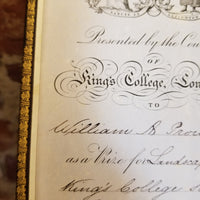 Presented by the Cou
OF
King's College, Lon
TO
William B
as a Prize for Landsca
King's College